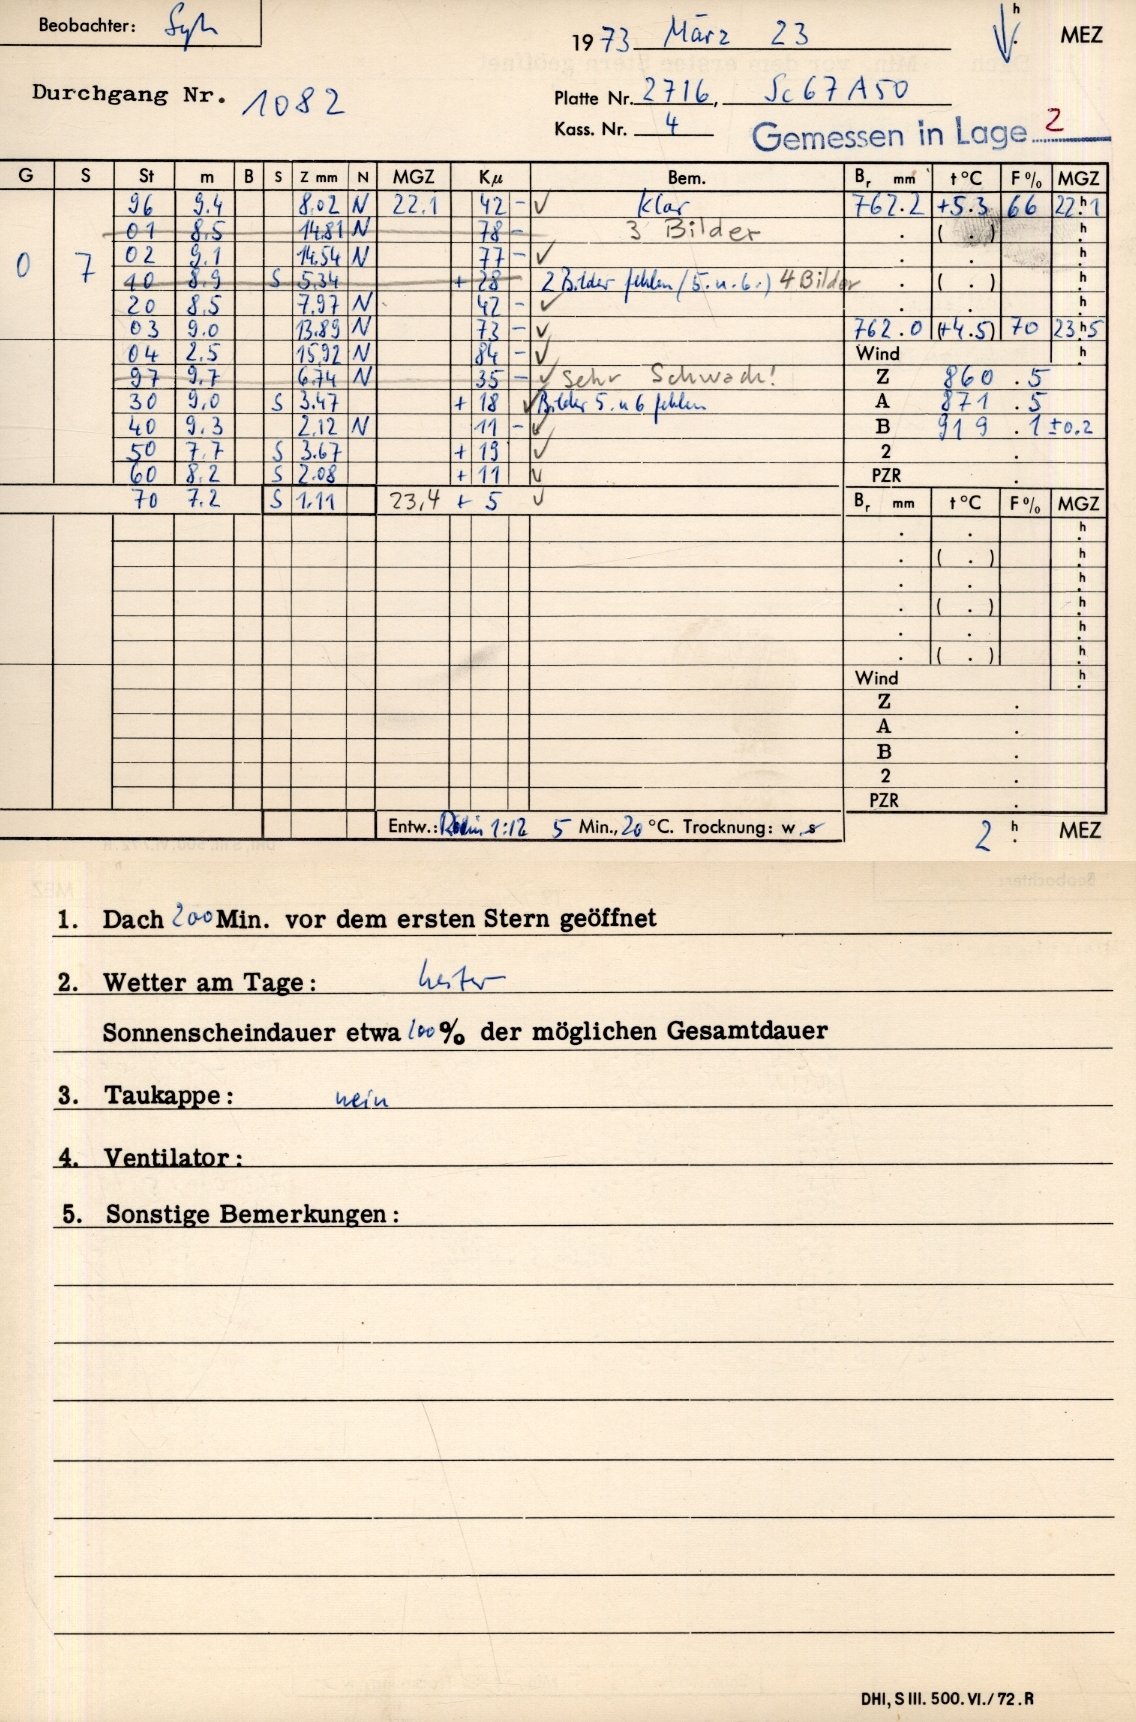 Beobachter: Syh
1973 März 23 h MEZ
Durchgang Nr. 1082
Platte Nr. 2716, Sc67A50
Kass. Nr. 4
Gemessen in Lage 2
G S St m B S Z mm N MGZ Kμ Bem. Br mm t °C F % MGZ
96 9.4 8.02 N 22.1 42 - ✓ klar 762.2 +5.3 66 22.h1
01 8.5 14.81 N 78 - 3 Bilder . ( . ) h
0 7 02 9.1 14.54 N 77 - ✓ . . h
10 8.9 S 5.34 + 28 2 Bilder fehlen (5. u. 6.) 4 Bilder . ( . ) h
20 8.5 7.97 N 42 - ✓ . . h
03 9.0 13.89 N 73 - ✓ 762.0 (+4.5) 70 23.h5
04 2.5 15.92 N 84 - ✓ Wind h
97 9.7 6.74 N 35 - ✓ Sehr Schwach! Z 860.5
30 9.0 S 3.47 + 18 ✓ Bilder 5. u 6 fehlen A 871.5
40 9.3 2.12 N 11 - ✓ B 919.1 ±0.2
50 7.7 S 3.67 + 19 ✓ 2 .
60 8.2 S 2.08 + 11 ✓ PZR .
70 7.2 S 1.11 23,4 + 5 ✓ Br mm t °C F % MGZ
. . h
. ( . ) h
. . h
. ( . ) h
. . h
. ( . ) h
Wind h
Z .
A .
B .
2 .
PZR .
Entw.: 1:12 5 Min., 20 °C. Trocknung: w s 2 h MEZ
1. Dach 200 Min. vor dem ersten Stern geöffnet
2. Wetter am Tage: heiter
Sonnenscheindauer etwa 100 % der möglichen Gesamtdauer
3. Taukappe: nein
4. Ventilator:
5. Sonstige Bemerkungen:
DHI, S III. 500. VI./72. R